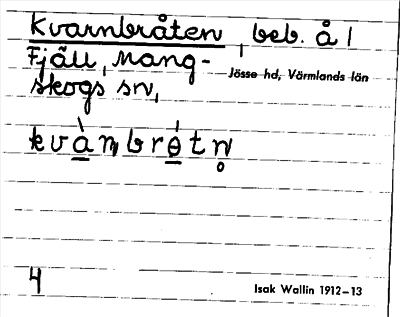 Kvarnbråten, beb. å /
Fjäll, Mang-
skogs sn,
Jösse hd, Värmlands län
4
Isak Wallin 1912–13